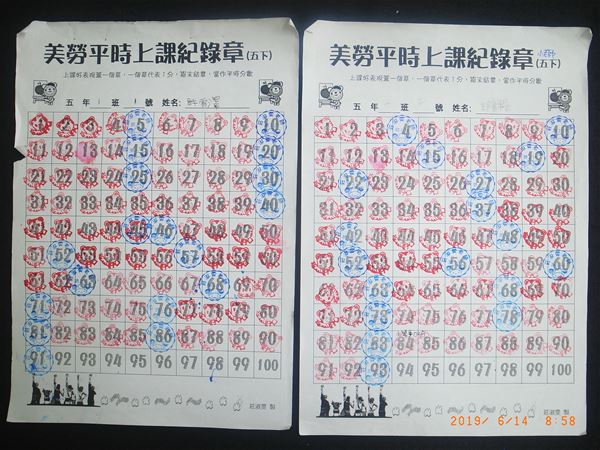 美勞平時上課紀錄章(五下)
上課好表現蓋一個章，一個章代表1分，期末結算，當作平時分數
五 年 1 班 1 號 姓名:
1 2 3 4 5 6 7 8 9 10
11 12 13 14 15 16 17 18 19 20
21 22 23 24 25 26 27 28 29 30
31 32 33 34 35 36 37 38 39 40
41 42 43 44 45 46 47 48 49 50
51 52 53 54 55 56 57 58 59 60
61 62 63 64 65 66 67 68 69 70
71 72 73 74 75 76 77 78 79 80
81 82 83 84 85 86 87 88 89 90
91 92 93 94 95 96 97 98 99 100
莊淑雯 製
美勞平時上課紀錄章(五下)
上課好表現蓋一個章，一個章代表1分，期末結算，當作平時分數
五 年 班 號 姓名:
1 2 3 4 5 6 7 8 9 10
11 12 13 14 15 16 17 18 19 20
21 22 23 24 25 26 27 28 29 30
31 32 33 34 35 36 37 38 39 40
41 42 43 44 45 46 47 48 49 50
51 52 53 54 55 56 57 58 59 60
61 62 63 64 65 66 67 68 69 70
71 72 73 74 75 76 77 78 79 80
81 82 83 84 85 86 87 88 89 90
91 92 93 94 95 96 97 98 99 100
莊淑雯 製
2019/ 6/14 8:58